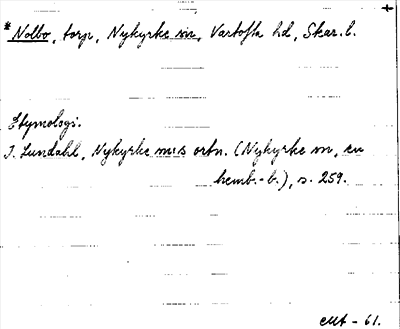 * Nolbo, torp, Nykyrke sn, Vartofta hd, Skar. l.
Etymologi.
I. Lundahl, Nykyrke sn:s ortn. (Nykyrke sn, en
hemb.-b.), s. 259.
- 61.